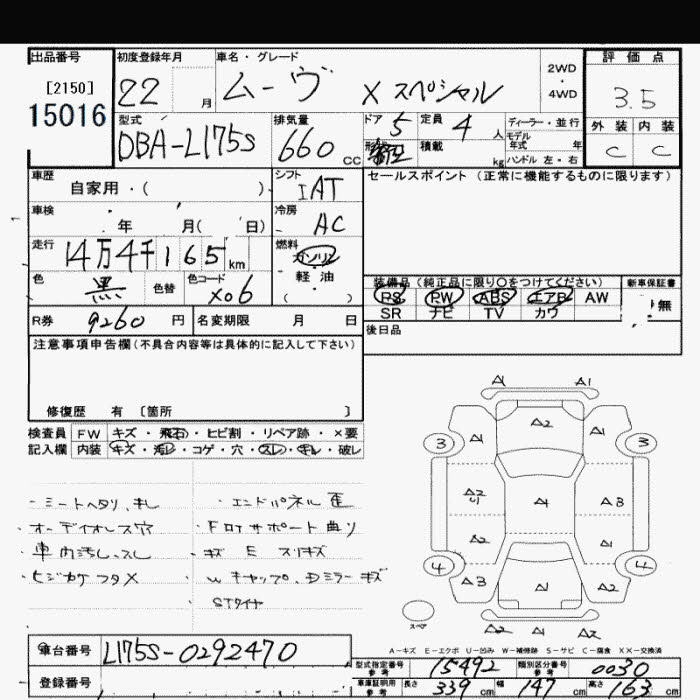 出品番号 初度登録年月 車名・グレード 2WD・4WD 評価点
[2150]
15016 22 月 ムーヴ X スペシャル 3.5
型式 排気量 ドア 定員 ディーラー・並行 外装 内装
DBA-L175S 660 CC 5 4 人 モデル年式 年 C C
形状 積載 kg ハンドル 左・右
車歴 シフト セールスポイント (正常に機能するものに限ります)
自家用・( ) IAT
車検 年 月( 日) 冷房 AC
走行 14万4千165 km 燃料 ガソリン
色 黒 色替 色コード X06 軽油 ( )
装備品 (純正品に限り〇をつけてください) 新車保証書
PS PW ABS エアB AW 無
SR ナビ TV カワ
R券 9260 円 名変期限 月 日 後日品
注意事項申告欄(不具合内容等は具体的に記入して下さい)
修復歴 有 〔箇所 〕
検査員 FW キズ・飛石・ヒビ割・リペア跡・×要
記入欄 内装 キズ・汚レ・コゲ・穴・スレ・キレ・破レ
・シートヘタリ、キレ
・オーディオレス穴
・車内汚レ、スレ
・ヒジカケフタ×
・エンドパネル歪
・F ロアサポート曲リ
・キズ E スリキズ
・W キャップ、Dミラー キズ
STタイヤ
A1 A1
A2
3 A1 A1 3
A2 U A1 A3
A2 A1
4 A3 A1 A2 4
スペア A2 A1 A2
A-キズ E-エクボ U-凹み W-補修跡 S-サビ C-腐食 XX-交換済
車台番号 L175S-0292470
登録番号
型式指定番号 参考 15492 類別区分番号 参考 0030
車庫証明用 参考 長さ 339 cm 幅 147 cm 高さ 163 cm